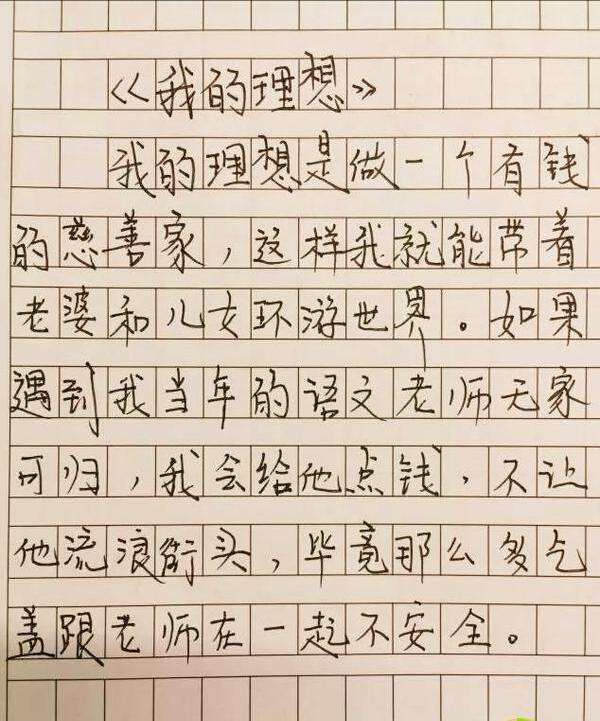 《我的理想》
我的理想是做一个有钱
的慈善家，这样我就能带着
老婆和儿女环游世界。如果
遇到我当年的语文老师无家
可归，我会给他点钱，不让
他流浪街头，毕竟那么多乞
盖跟老师在一起不安全。